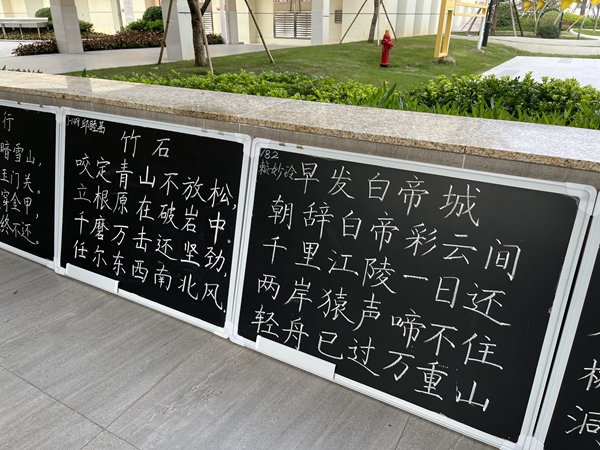 行
暗雪山,
玉门关。
穿金甲,
终不还。
竹石
咬定青山不放松,
立根原在破岩中。
千磨万击还坚劲,
任尔东西南北风,
182
早发白帝城
朝辞白帝彩云间
千里江陵一日还
两岸猿声啼不住
轻舟已过万重山